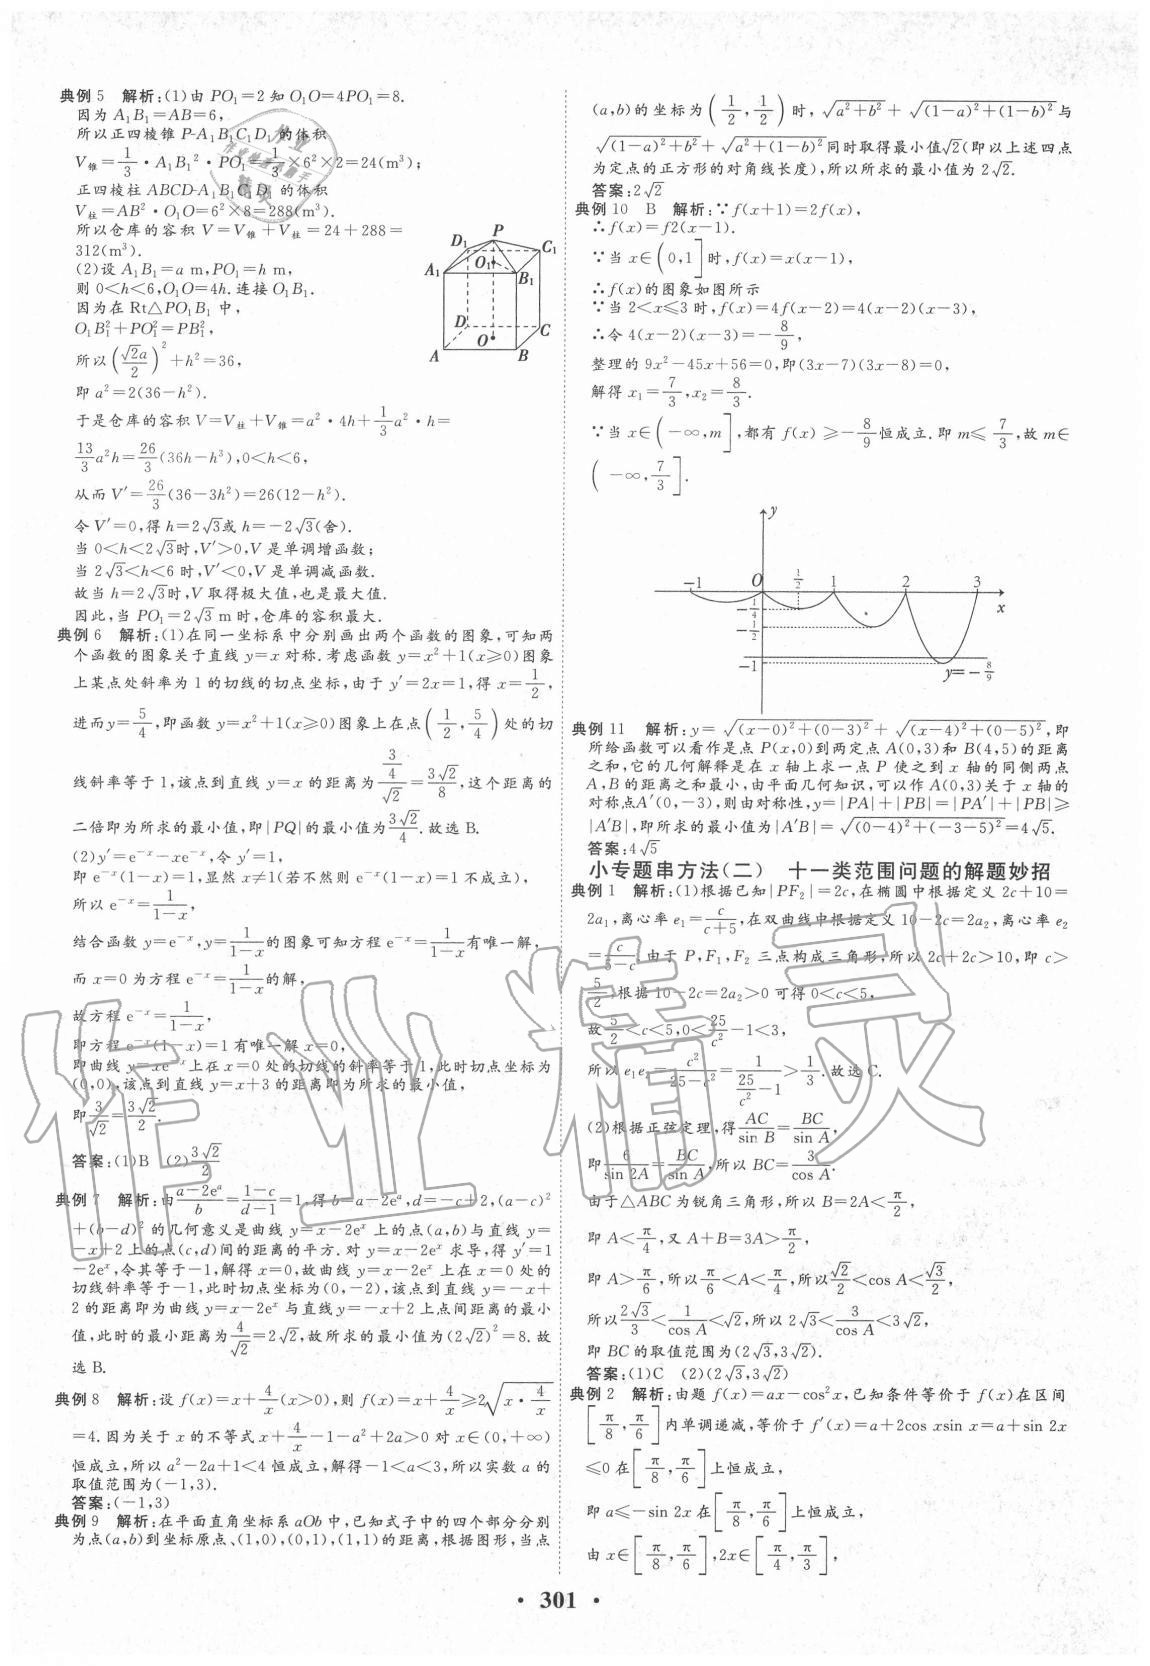 典例5　解析:(1)由PO₁=2知O₁O=4PO₁=8.
因为A₁B₁=AB=6,
所以正四棱锥P-A₁B₁C₁D₁的体积
V锥=1/3·A₁B₁²·PO₁=1/3×6²×2=24(m³);
正四棱柱ABCD-A₁B₁C₁D₁的体积
V柱=AB²·O₁O=6²×8=288(m³).
所以仓库的容积V=V锥+V柱=24+288=
312(m³).
(2)设A₁B₁=a m,PO₁=h m,
则0<h<6,O₁O=4h.连接O₁B₁.
因为在Rt△PO₁B₁中,
O₁B₁²+PO₁²=PB₁²,
所以(√2a/2)²+h²=36,
即a²=2(36-h²).
于是仓库的容积V=V柱+V锥=a²·4h+1/3a²·h=
13/3a²h=26/3(36h-h³),0<h<6,
从而V′=26/3(36-3h²)=26(12-h²).
令V′=0,得h=2√3或h=-2√3(舍).
当0<h<2√3时,V′>0,V是单调增函数;
当2√3<h<6时,V′<0,V是单调减函数.
故当h=2√3时,V取得极大值,也是最大值.
因此,当PO₁=2√3 m时,仓库的容积最大.
P
D₁
C₁
O₁
A₁
B₁
D
C
O
A
B
典例6　解析:(1)在同一坐标系中分别画出两个函数的图象,可知两
个函数的图象关于直线y=x对称.考虑函数y=x²+1(x≥0)图象
上某点处斜率为1的切线的切点坐标,由于y′=2x=1,得x=1/2,
进而y=5/4,即函数y=x²+1(x≥0)图象上在点(1/2,5/4)处的切
线斜率等于1,该点到直线y=x的距离为(3/4)/√2=3√2/8,这个距离的
二倍即为所求的最小值,即|PQ|的最小值为3√2/4.故选B.
(2)y′=e⁻ˣ-xe⁻ˣ,令y′=1,
即e⁻ˣ(1-x)=1.显然x≠1(若不然则e⁻ˣ(1-x)=1不成立),
所以e⁻ˣ=1/(1-x),
结合函数y=e⁻ˣ,y=1/(1-x)的图象可知方程e⁻ˣ=1/(1-x)有唯一解,
而x=0为方程e⁻ˣ=1/(1-x)的解,
故方程e⁻ˣ=1/(1-x),
即方程e⁻ˣ(1-x)=1有唯一解x=0,
即曲线y=xe⁻ˣ上在x=0处的切线的斜率等于1,此时切点坐标为
(0,0),该点到直线y=x+3的距离即为所求的最小值,
即3/√2=3√2/2.
答案:(1)B　(2)3√2/2
典例7　解析:由(a-2eᵃ)/b=(1-c)/(d-1)=1,得b=a-2eᵃ,d=-c+2,(a-c)²
+(b-d)²的几何意义是曲线y=x-2eˣ上的点(a,b)与直线y=
-x+2上的点(c,d)间的距离的平方.对y=x-2eˣ求导,得y′=1
-2eˣ,令其等于-1,解得x=0,故曲线y=x-2eˣ上在x=0处的
切线斜率等于-1,此时切点坐标为(0,-2),该点到直线y=-x+
2的距离即为曲线y=x-2eˣ与直线y=-x+2上点间距离的最小
值,此时的最小距离为4/√2=2√2,故所求的最小值为(2√2)²=8.故
选B.
典例8　解析:设f(x)=x+4/x(x>0),则f(x)=x+4/x≥2√(x·4/x)
=4.因为关于x的不等式x+4/x-1-a²+2a>0对x∈(0,+∞)
恒成立,所以a²-2a+1<4恒成立,解得-1<a<3,所以实数a的
取值范围为(-1,3).
答案:(-1,3)
典例9　解析:在平面直角坐标系aOb中,已知式子中的四个部分分别
为点(a,b)到坐标原点、(1,0),(0,1),(1,1)的距离,根据图形,当点
(a,b)的坐标为(1/2,1/2)时,√(a²+b²)+√((1-a)²+(1-b)²)与
√((1-a)²+b²)+√(a²+(1-b)²)同时取得最小值√2(即以上述四点
为定点的正方形的对角线长度),所以所求的最小值为2√2.
答案:2√2
典例10　B　解析:∵f(x+1)=2f(x),
∴f(x)=f2(x-1).
∵当x∈(0,1]时,f(x)=x(x-1),
∴f(x)的图象如图所示
∵当2<x≤3时,f(x)=4f(x-2)=4(x-2)(x-3),
∴令4(x-2)(x-3)=-8/9,
整理的9x²-45x+56=0,即(3x-7)(3x-8)=0,
解得x₁=7/3,x₂=8/3.
∵当x∈(-∞,m],都有f(x)≥-8/9恒成立.即m≤7/3,故m∈
(-∞,7/3].
y
-1
O
1/2
1
2
3
x
-1/4
-1/2
-1
y=-8/9
典例11　解析:y=√((x-0)²+(0-3)²)+√((x-4)²+(0-5)²),即
所给函数可以看作是点P(x,0)到两定点A(0,3)和B(4,5)的距离
之和,它的几何解释是在x轴上求一点P使之到x轴的同侧两点
A,B的距离之和最小,由平面几何知识,可以作A(0,3)关于x轴的
对称点A′(0,-3),则由对称性,y=|PA|+|PB|=|PA′|+|PB|≥
|A′B|,即所求的最小值为|A′B|=√((0-4)²+(-3-5)²)=4√5.
答案:4√5
小专题串方法(二)　十一类范围问题的解题妙招
典例1　解析:(1)根据已知|PF₂|=2c,在椭圆中根据定义2c+10=
2a₁,离心率e₁=c/(c+5),在双曲线中根据定义10-2c=2a₂,离心率e₂
=c/(5-c).由于P,F₁,F₂三点构成三角形,所以2c+2c>10,即c>
5/2.根据10-2c=2a₂>0可得0<c<5,
故5/2<c<5,0<25/c²-1<3,
所以e₁e₂=c²/(25-c²)=1/(25/c²-1)>1/3.故选C.
(2)根据正弦定理,得AC/sin B=BC/sin A,
即6/sin 2A=BC/sin A,所以BC=3/cos A.
由于△ABC为锐角三角形,所以B=2A<π/2,
即A<π/4,又A+B=3A>π/2,
即A>π/6,所以π/6<A<π/4,所以√2/2<cos A<√3/2,
所以2√3/3<1/cos A<√2,所以2√3<3/cos A<3√2,
即BC的取值范围为(2√3,3√2).
答案:(1)C　(2)(2√3,3√2)
典例2　解析:由题f(x)=ax-cos²x,已知条件等价于f(x)在区间
[π/8,π/6]内单调递减,等价于f′(x)=a+2cos xsin x=a+sin 2x
≤0在[π/8,π/6]上恒成立,
即a≤-sin 2x在[π/8,π/6]上恒成立,
由x∈[π/8,π/6],2x∈[π/4,π/3],
· 301 ·
作业精灵